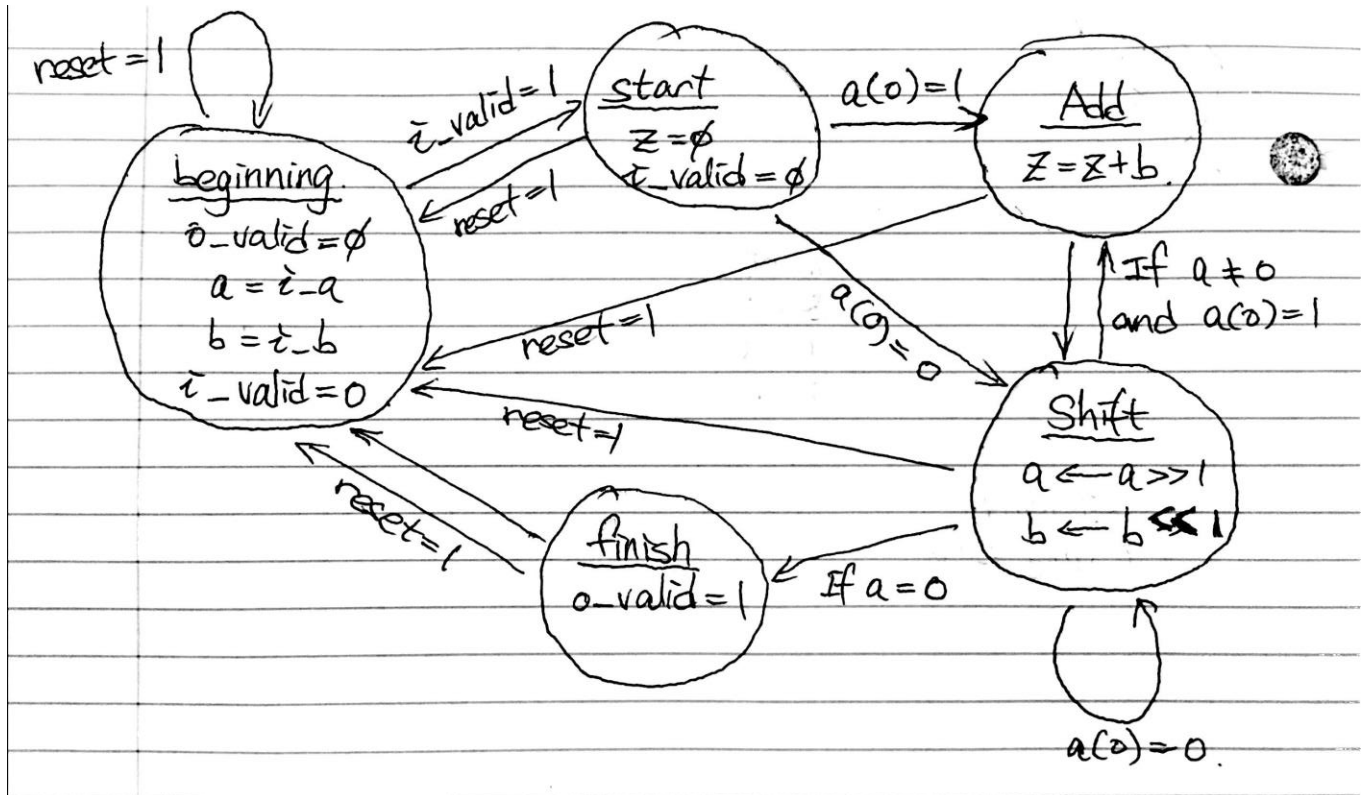 reset=1
beginning.
o_valid=ϕ
a=i_a
b=i_b
i_valid=0
i_valid=1
reset=1
start
z=ϕ
i_valid=ϕ
a(0)=1
Add
z=z+b.
reset=1
a(0)=0
If a≠0
and a(0)=1
reset=1
Shift
a←a>>1
b←b<<1
reset=1
finish
o_valid=1
If a=0
a(0)=0.